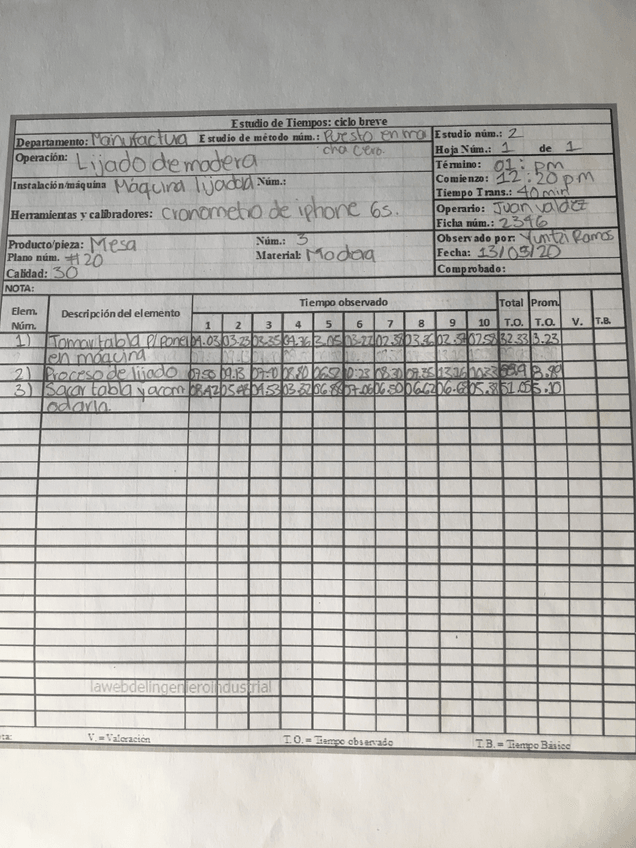 Estudio de Tiempos: ciclo breve
Departamento: Manufactura Estudio de método núm.: Puesto en mar
cha Cero.
Estudio núm.: 2
Operación: Lijado de madera
Hoja Núm.: 1 de 1
Término: 01: pm
Instalación/máquina Máquina lijadora Núm.:
Comienzo: 12:20 pm
Tiempo Trans.: 40 min
Herramientas y calibradores: cronometro de iphone 6s.
Operario: Juan Valdez
Ficha núm.: 2346
Producto/pieza: Mesa Núm.: 3
Observado por: Yuntzi Ramos
Plano núm. #20 Material: Madera
Fecha: 13/03/20
Calidad: 30
Comprobado:
NOTA:
Elem. Núm. Descripción del elemento Tiempo observado Total T.O. Prom. T.O. V. T.B.
1 2 3 4 5 6 7 8 9 10
1) Tomar tabla p/poner 04.03 03.23 03.35 04.36 3.05 03.22 02.58 03.36 02.37 02.58 32.33 3.23
en máquina
2) Proceso de lijado 07.50 09.13 07.70 08.80 06.52 10:23 08.30 07.35 13.26 10.23 3.89
3) Sacar tabla y acom 08.42 05.48 04.53 03.32 06.88 07.06 06.50 06.62 06.68 05.38 51.05 5.10
odarla.
lawebdelingenieroindustrial
V. = Valoración T.O. = Tiempo observado T.B. = Tiempo Básico